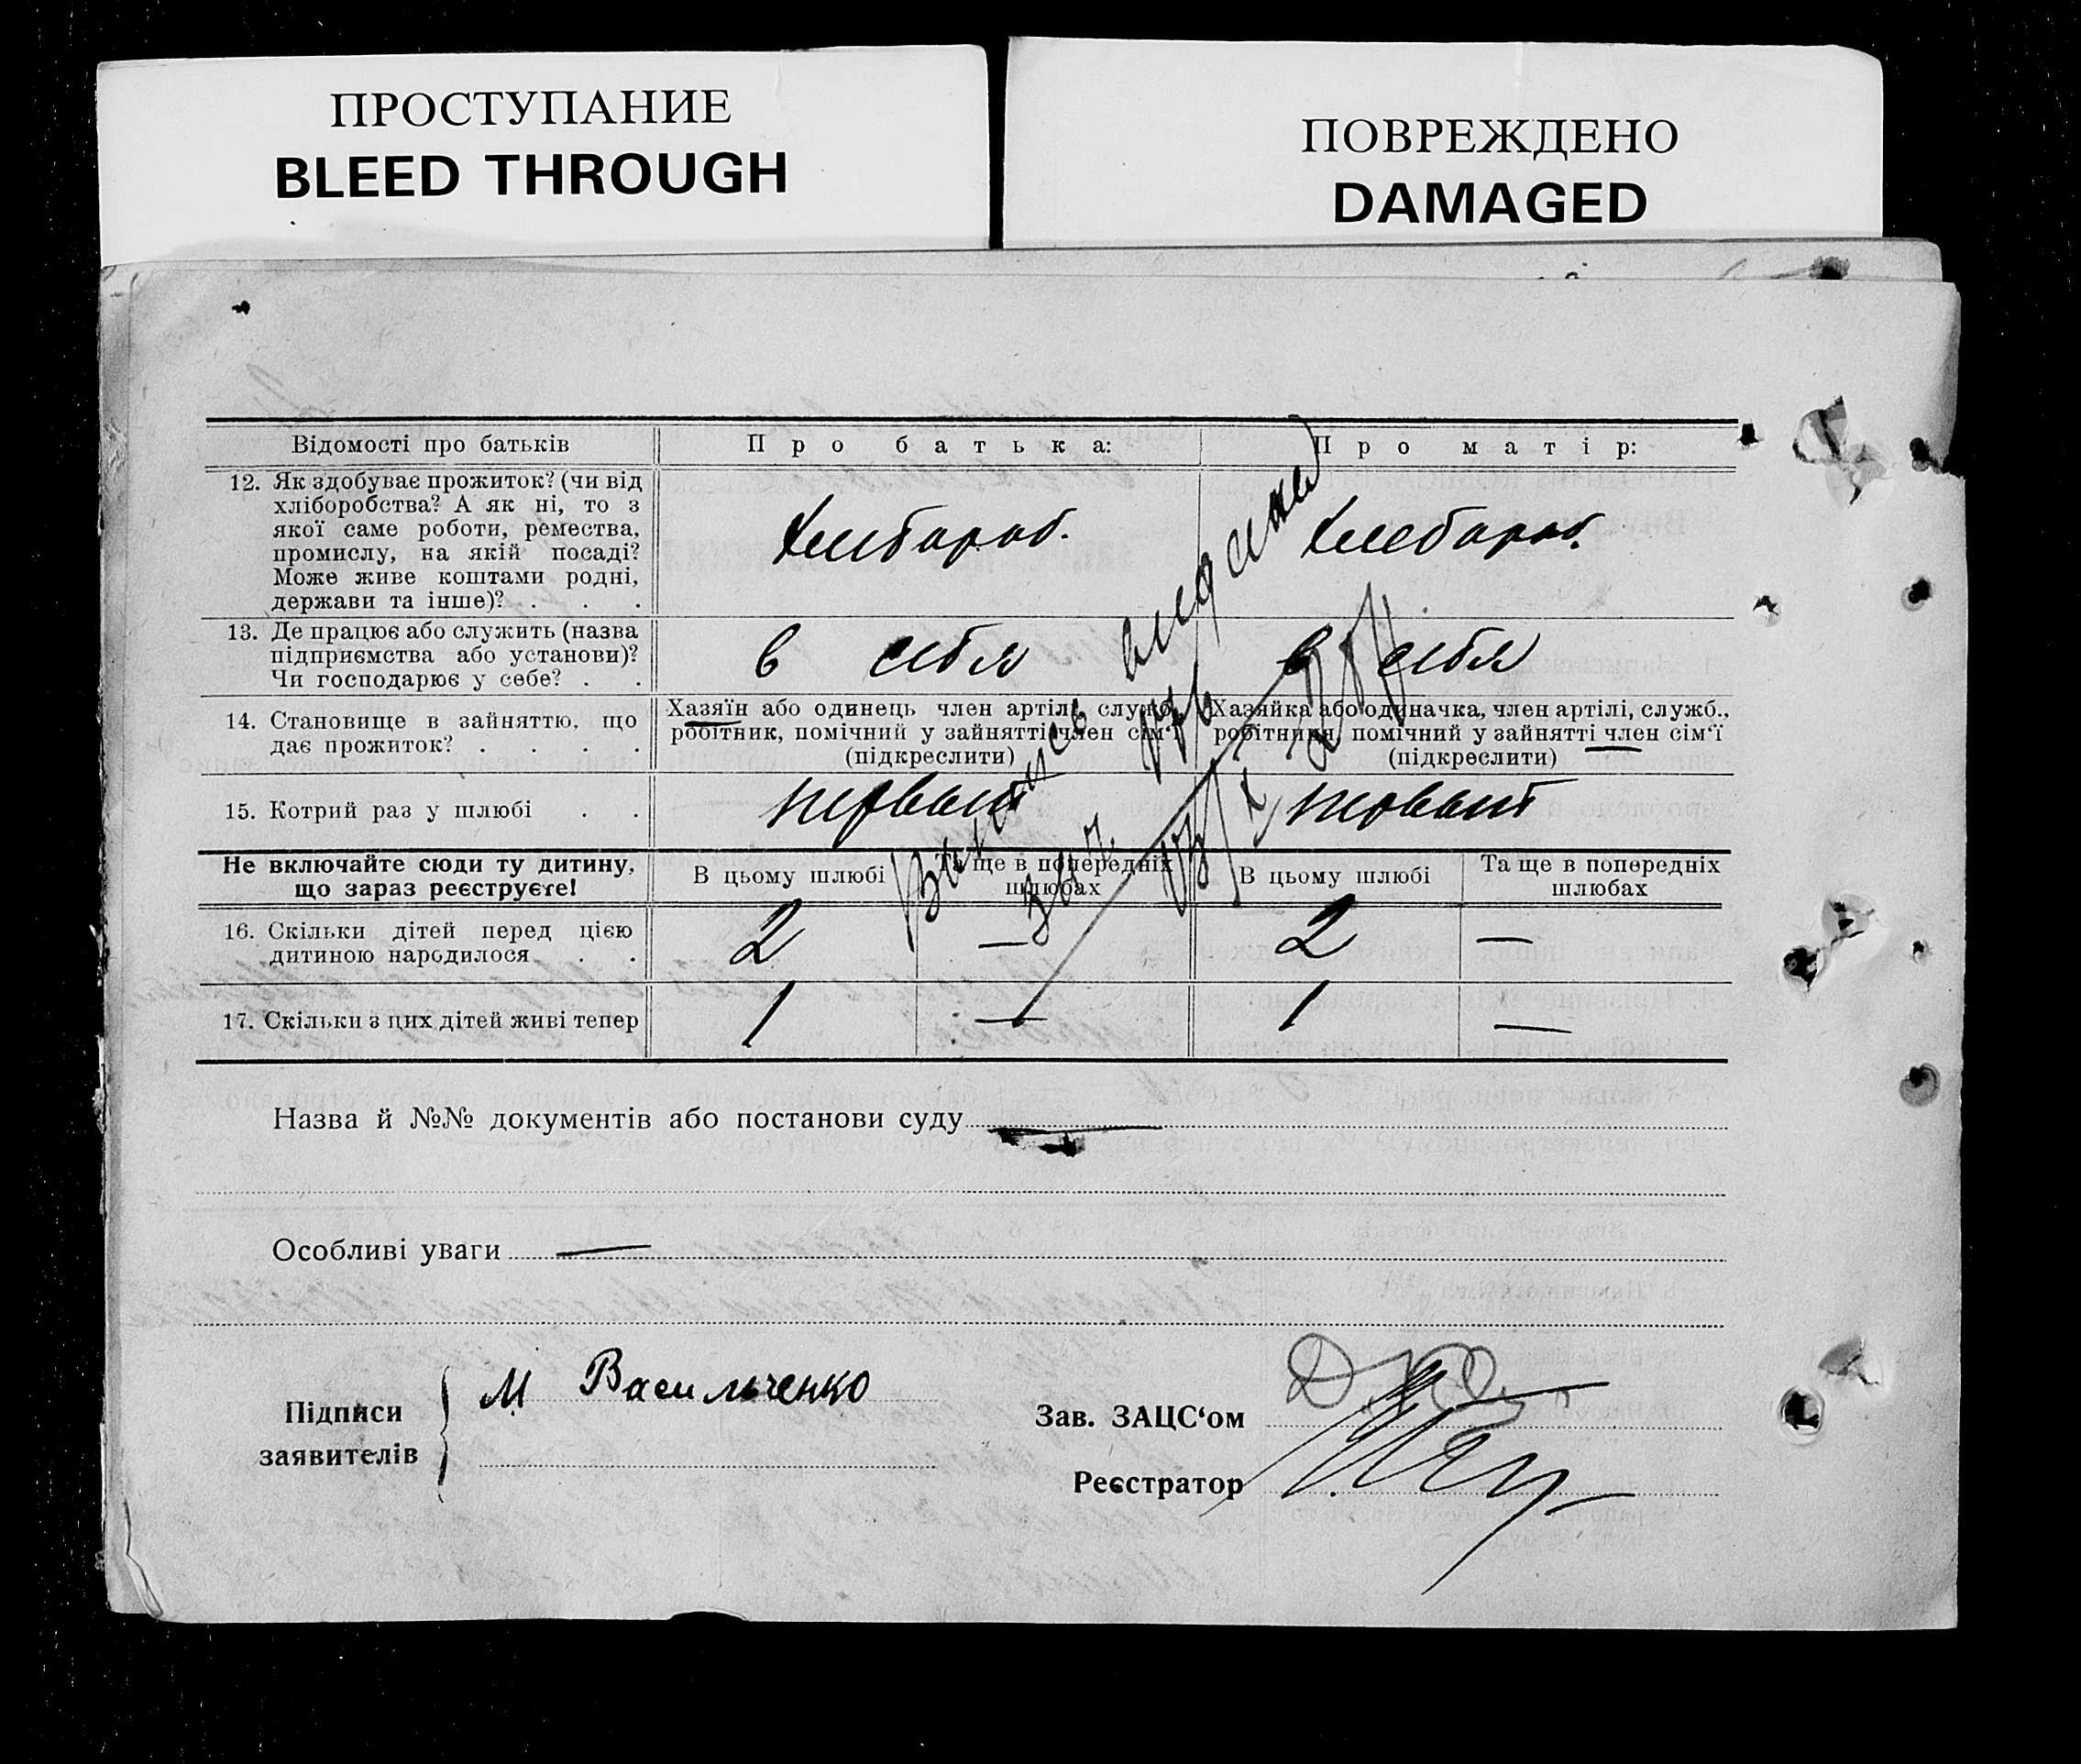 ПРОСТУПАНИЕ
BLEED THROUGH
ПОВРЕЖДЕНО
DAMAGED
Відомості про батьків
Про батька:
Про матір:
12. Як здобуває прожиток? (чи від
хліборобства? А як ні, то з
якої саме роботи, ремества,
промислу, на якій посаді?
Може живе коштами родні,
держави та інше)? . . .
Хлебороб.
Хлебороб.
13. Де працює або служить (назва
підприємства або установи)?
Чи господарює у себе? . .
в себя
в себя
14. Становище в зайняттю, що
дає прожиток? . . . .
Хазяїн або одинець член артілі, служб.
робітник, помічний у зайнятті член сім'ї
(підкреслити)
Хазяйка або одиначка, член артілі, служб.,
робітниця, помічний у зайнятті член сім'ї
(підкреслити)
15. Котрий раз у шлюбі . .
первый
первый
Не включайте сюди ту дитину,
що зараз реєструєте!
В цьому шлюбі
Та ще в попередніх
шлюбах
В цьому шлюбі
Та ще в попередніх
шлюбах
16. Скільки дітей перед цією
дитиною народилося . .
2
—
2
—
17. Скільки з цих дітей живі тепер
1
—
1
—
Назва й №№ документів або постанови суду —
Особливі уваги —
Підписи
заявителів
М Васильченко
Зав. ЗАЦС'ом
Реєстратор